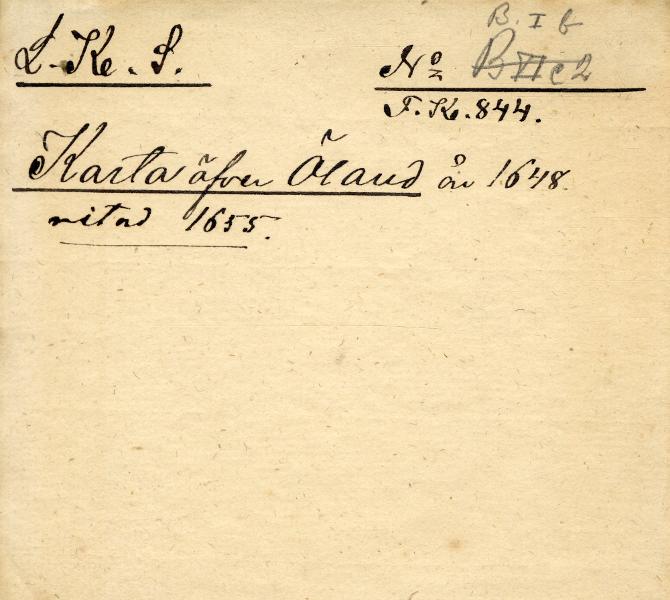 L. Ke. S.
B. I b
No B VI c 2
F. K. 844.
Karta öfver Öland år 1648.
ritad 1655.